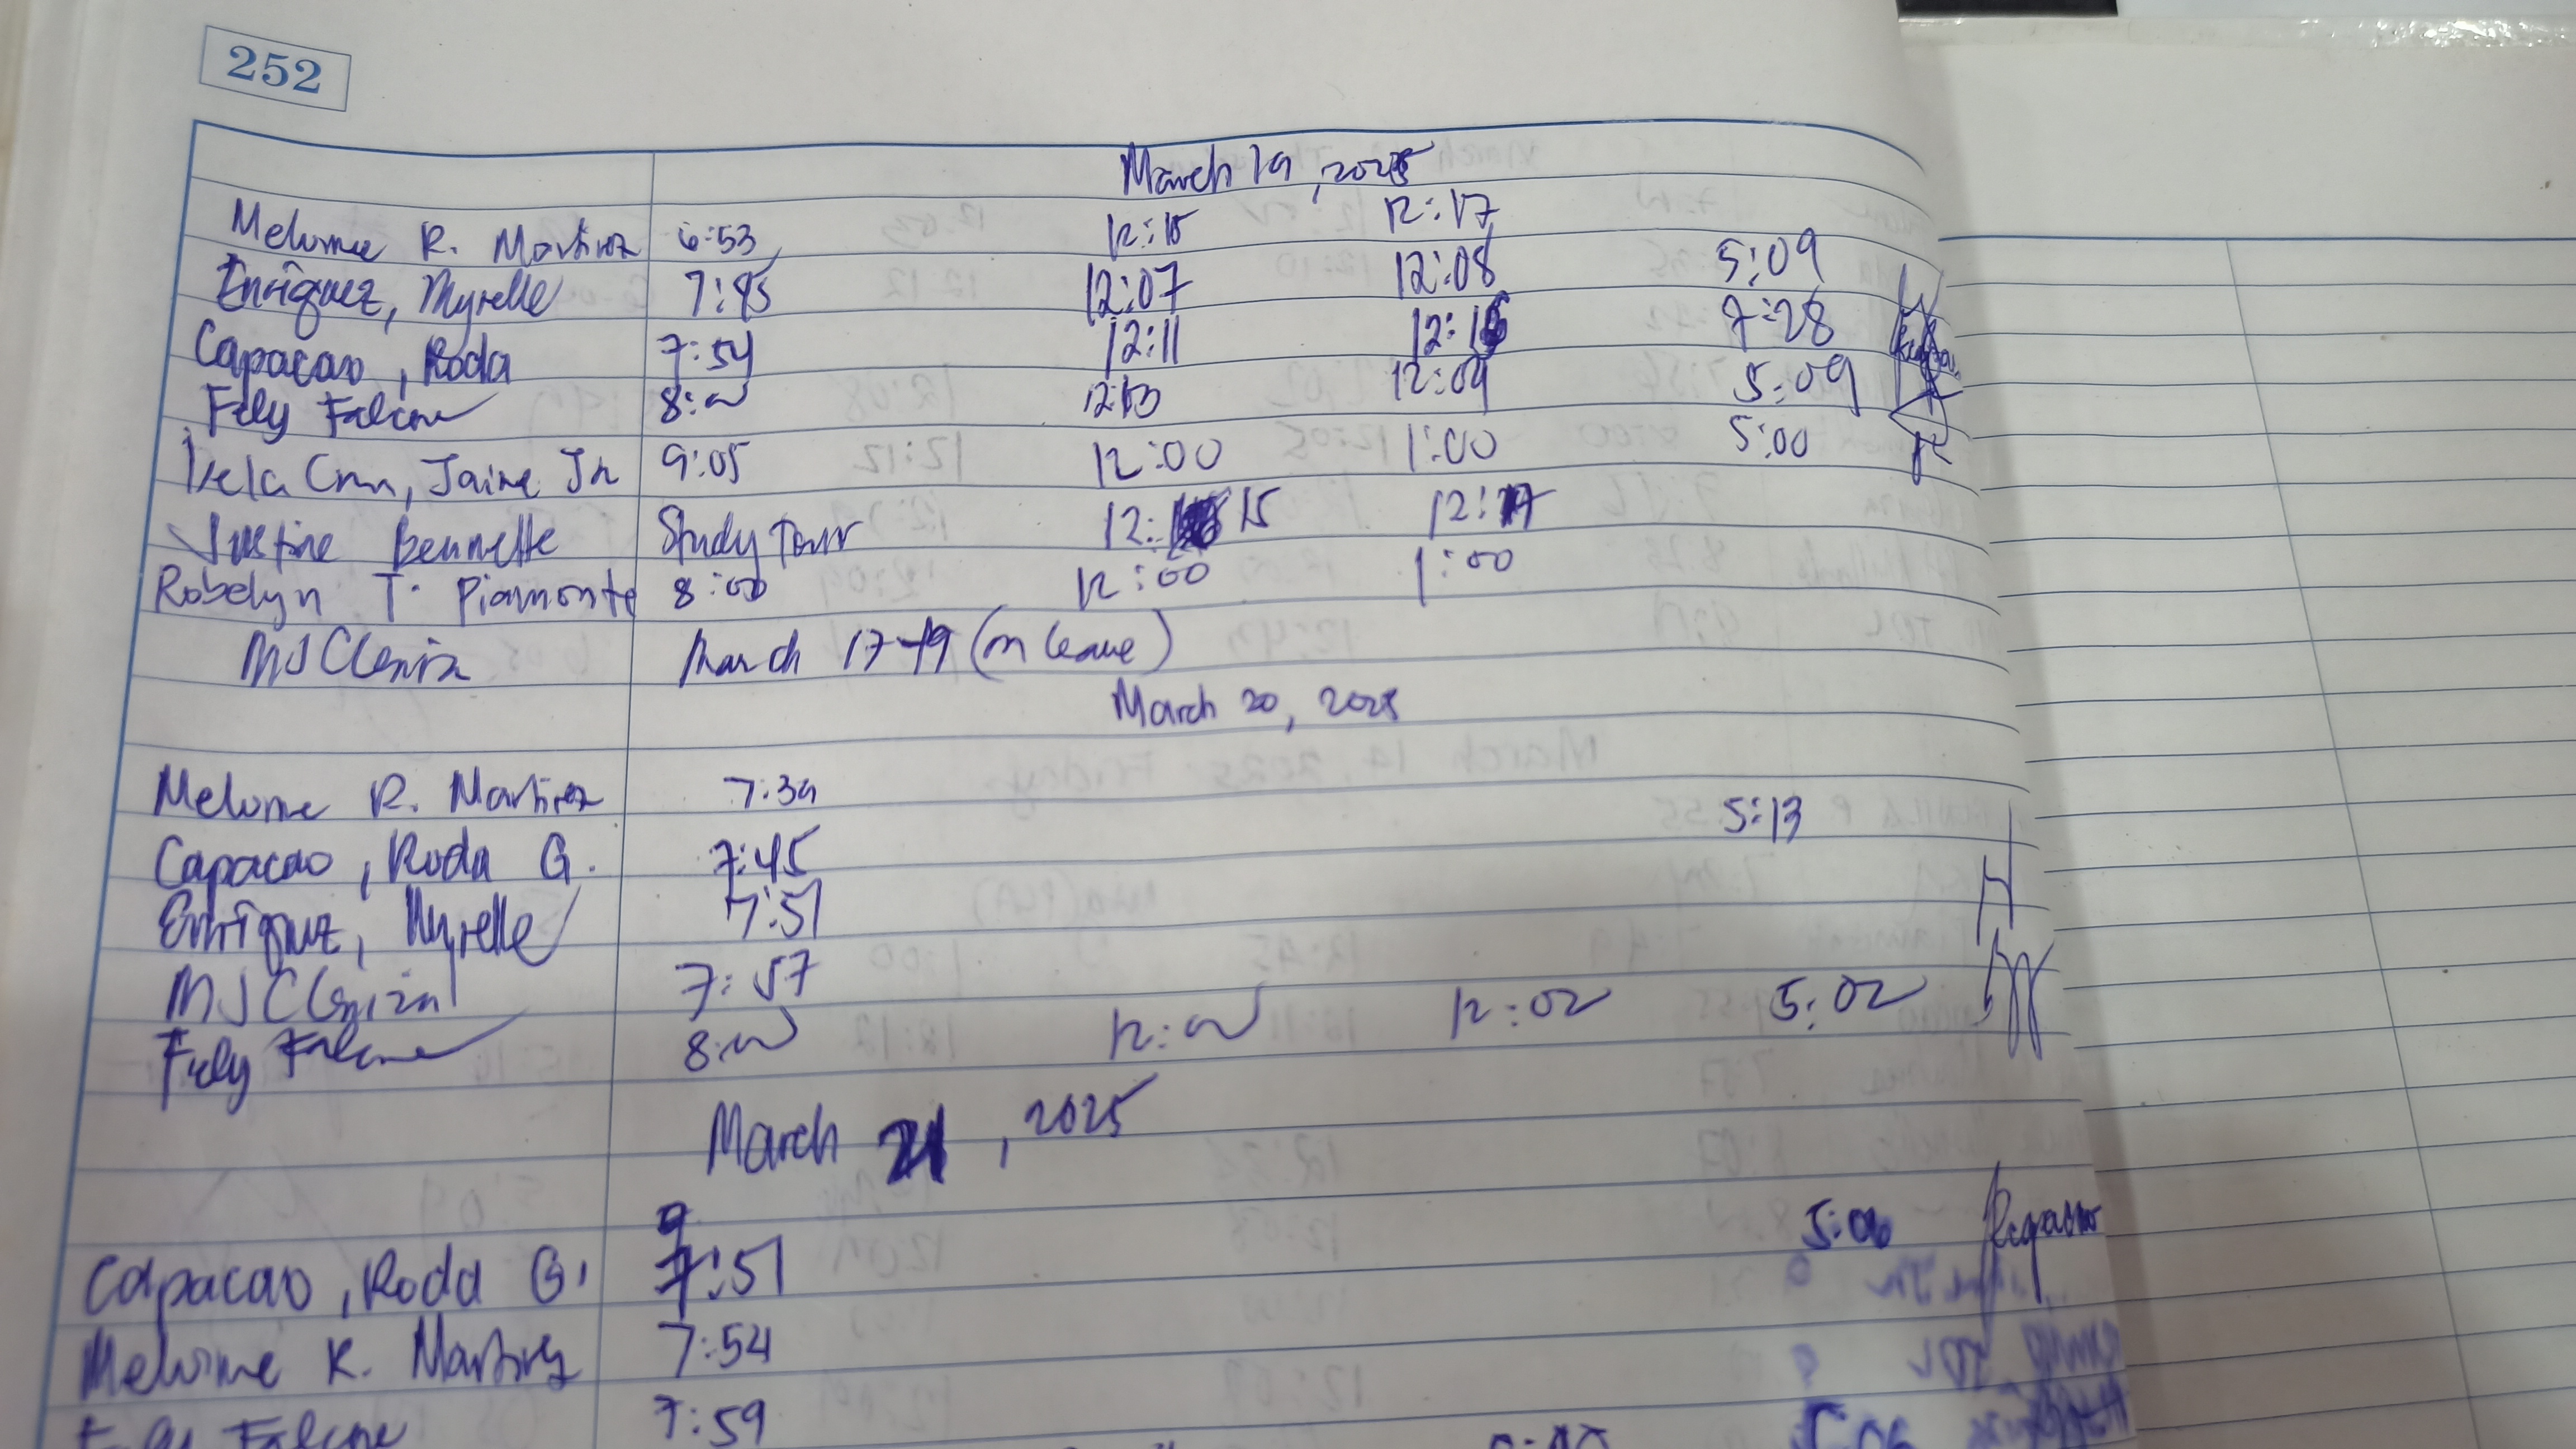 252
March 19, 2025
Melvime R. Martirez 6:53 12:15 12:17
Enriquez, Myrelle 7:45 12:07 12:08 5:09
Capacao, Roda 7:54 12:11 12:15 7:28
Fely Falcone 8:00 12:03 12:04 5:09
Jaime Jr 9:05 12:00 1:00 5:00
Justine Bennette Study Tour 12: 15 12:17
Robelyn T. Piamonte 8:00 12:00 1:00
MJCCleniza March 17-19 (on leave)
March 20, 2025
Melvime R. Martirez 7:39
5:13
Capacao, Roda G. 7:45
Enriquez, Myrelle 7:51
MJCCleniza 7:57
Fely Falcone 8:00 12:00 12:02 5:02
March 21, 2025
Capacao, Roda G. 7:51 5:06
Melvime R. Martirez 7:54
Falcone 7:59